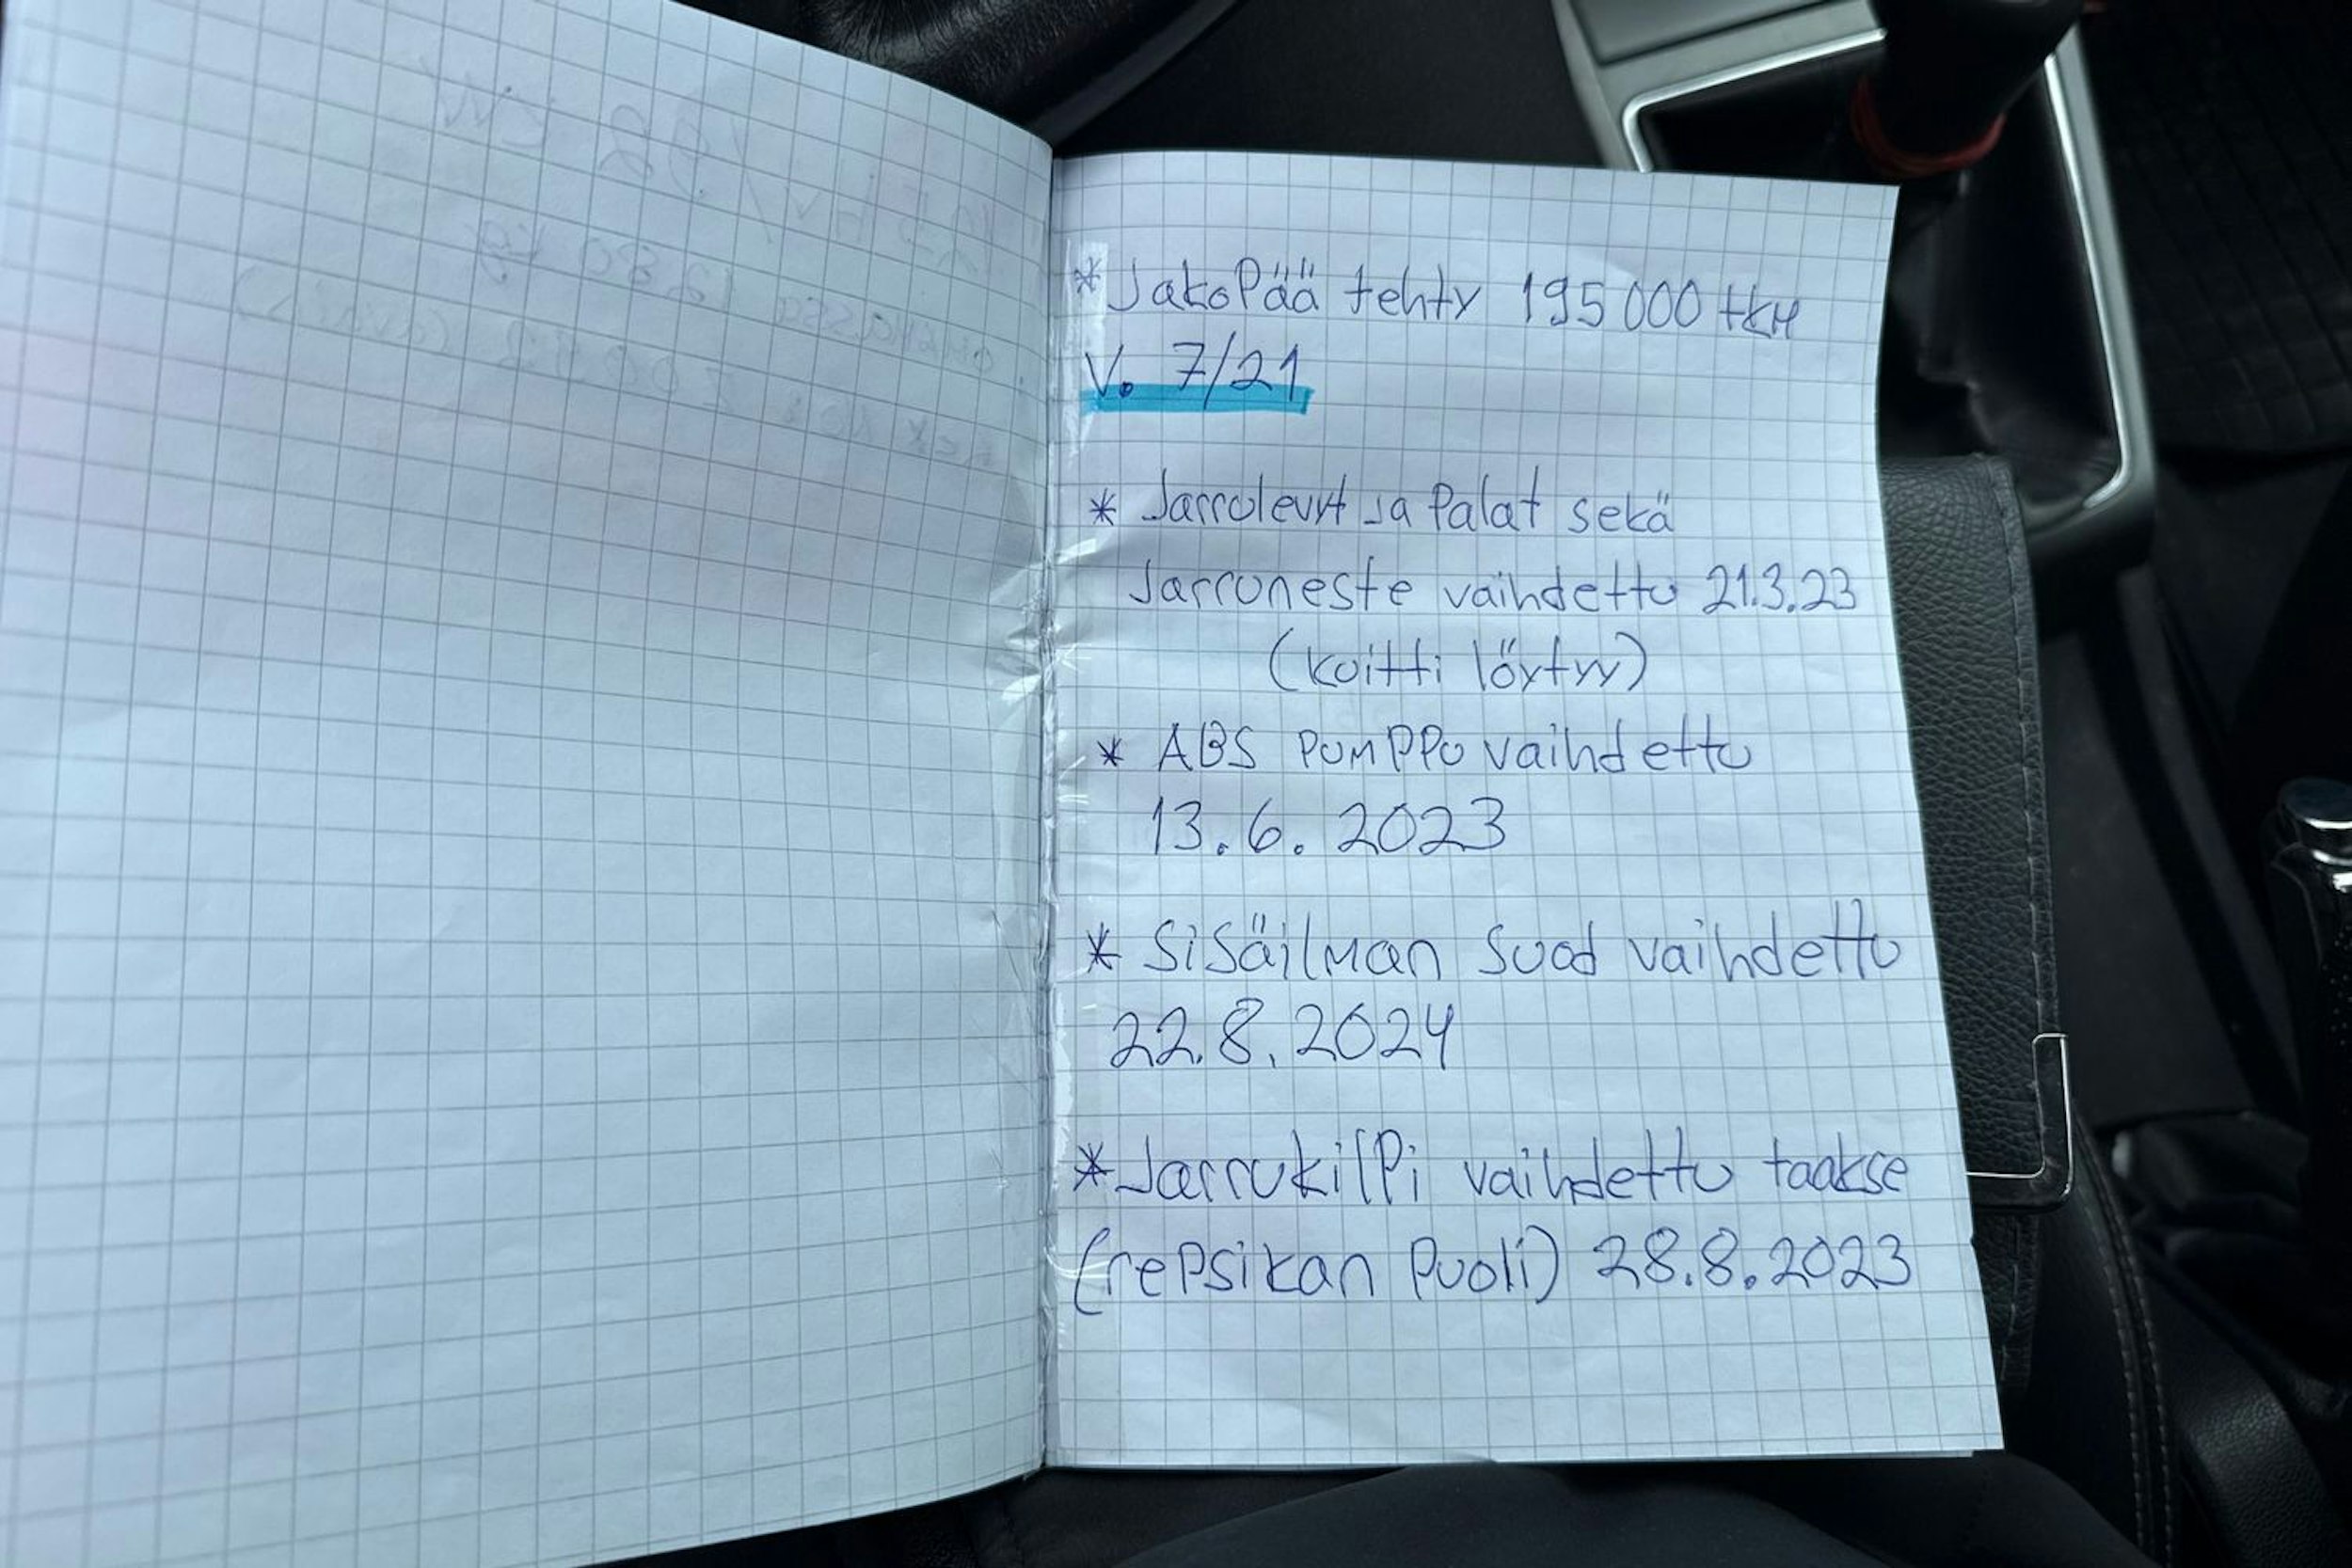 * Jakopää tehty 195 000 tkm
V. 7/21
* Jarrulevyt ja Palat sekä
Jarruneste vaihdettu 21.3.23
(kuitti löytyy)
* ABS PUMPPU vaihdettu
13.6.2023
* Sisäilman suod vaihdettu
22.8.2024
* Jarrukilpi vaihdettu taakse
(repsikan puoli) 28.8.2023